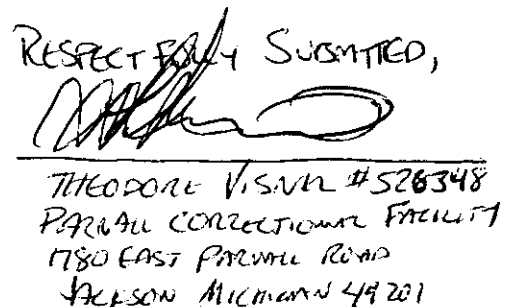 RESPECTFULLY SUBMITTED,
THEODORE VISNER #526348
PARNALL CORRECTIONAL FACILITY
1780 EAST PARNALL ROAD
JACKSON MICHIGAN 49201